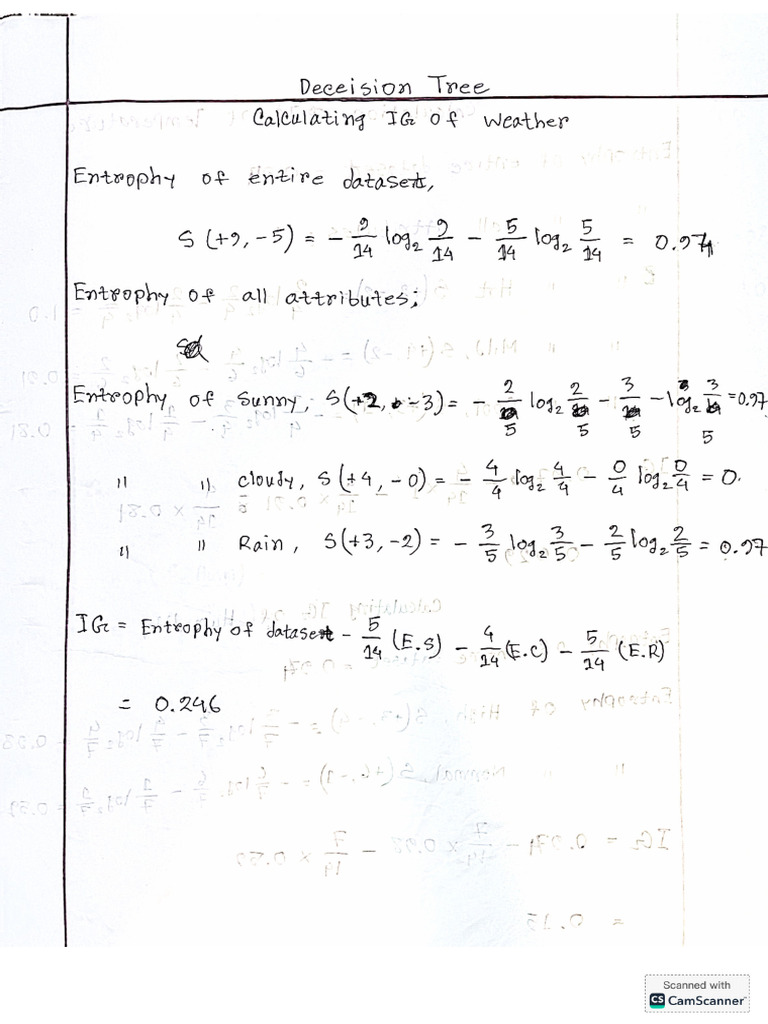 Deceision Tree
Calculating IG of Weather
Entrophy of entire dataset,
S (+9, -5) = - 9/14 log₂ 9/14 - 5/14 log₂ 5/14 = 0.94
Entrophy of all attributes;
Entrophy of Sunny, S(+2, -3) = - 2/5 log₂ 2/5 - 3/5 - log₂ 3/5 = 0.97
" " cloudy, S(+4, -0) = - 4/4 log₂ 4/4 - 0/4 log₂ 0/4 = 0.
" " Rain, S(+3, -2) = - 3/5 log₂ 3/5 - 2/5 log₂ 2/5 = 0.97
IG = Entrophy of dataset - 5/14 (E.S) - 4/14 (E.C) - 5/14 (E.R)
= 0.246
Scanned with
CS CamScanner